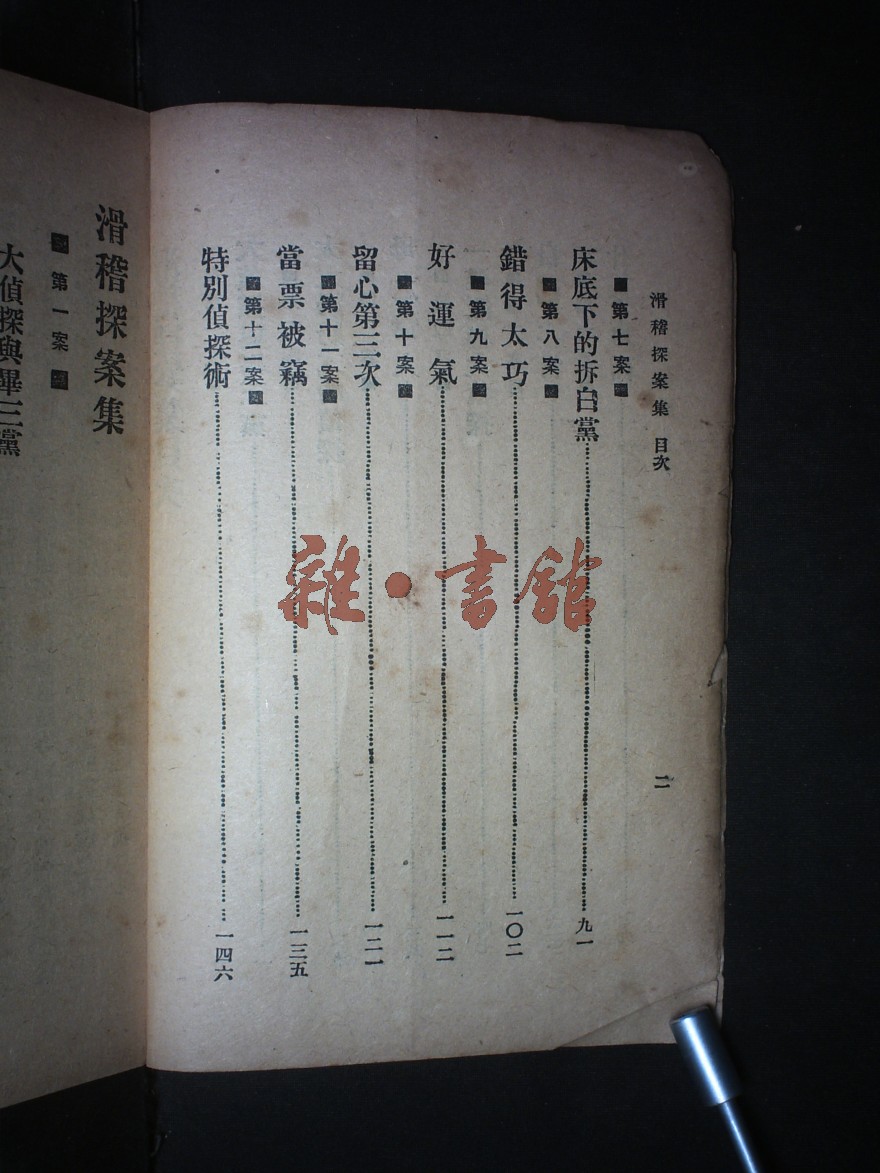 滑稽探案集 目次
二
第七案
床底下的拆白黨 九一
第八案
錯得太巧 一〇二
第九案
好運氣 一一二
第十案
留心第三次 一二一
第十一案
當票被竊 一三五
第十二案
特別偵探術 一四六
滑稽探案集
第一案
大偵探與畢三黨
雜·書館